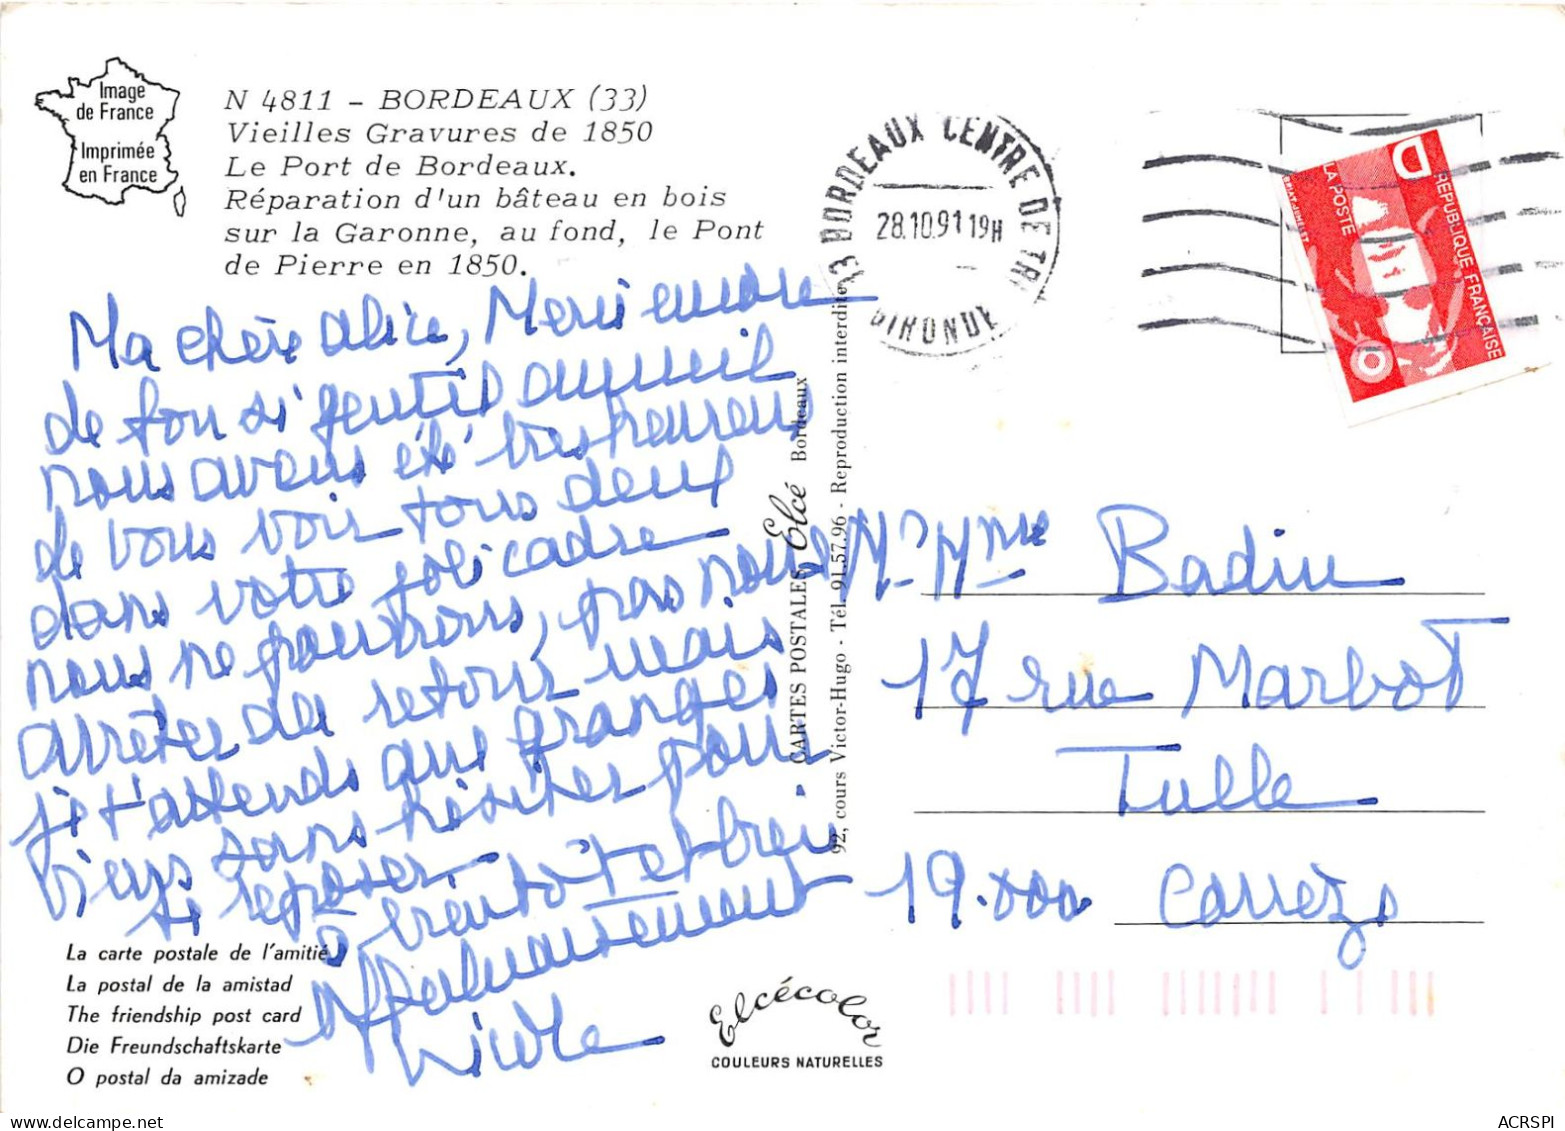 Image
de France
Imprimée
en France
N 4811 - BORDEAUX (33)
Vieilles Gravures de 1850
Le Port de Bordeaux.
Réparation d'un bâteau en bois
sur la Garonne, au fond, le Pont
de Pierre en 1850.
Ma chère Alice, Merci encore
de ton si gentil accueil
nous avons été très heureux
de vous voir tous deux
dans votre joli cadre
nous ne pourrons, pas nous
arrêter au retour mais
je t'attends que
viens sans hésiter pour
te reposer
à bientôt et
Affectueusement
Nicole
La carte postale de l'amitié
La postal de la amistad
The friendship post card
Die Freundschaftskarte
O postal da amizade
CARTES POSTALES Elcé Bordeaux
92, cours Victor-Hugo - Tél. 91.57.96 - Reproduction interdite
Elcécolor
COULEURS NATURELLES
33 BORDEAUX CENTRE DE TRI
28.10.91 19H
GIRONDE
D
LA POSTE
REPUBLIQUE FRANÇAISE
Mr Mme Badin
17 rue Marbot
Tulle
19.000 Corrèze
ACRSPI